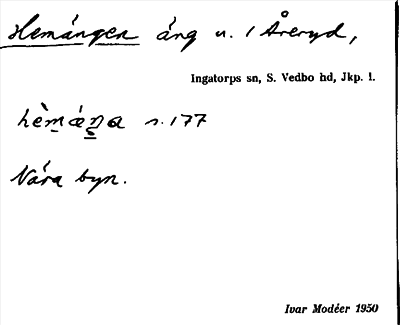 Hemängen äng u. 1 Åreryd,
Ingatorps sn, S. Vedbo hd, Jkp. l.
hèmǽŋa s. 177
Nära byn.
Ivar Modéer 1950